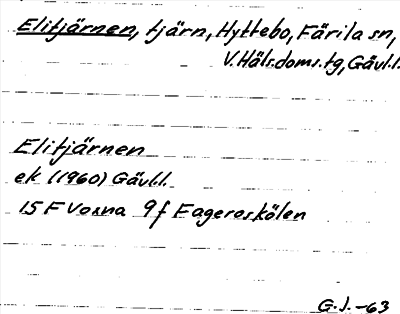 Elitjärnen, tjärn, Hyttebo, Färila sn,
V. Häls. doms. tg, Gävl.l.
Elitjärnen
ek (1960) Gävl.l.
15 F Voxna 9 f Fageråskölen
G.J. -63